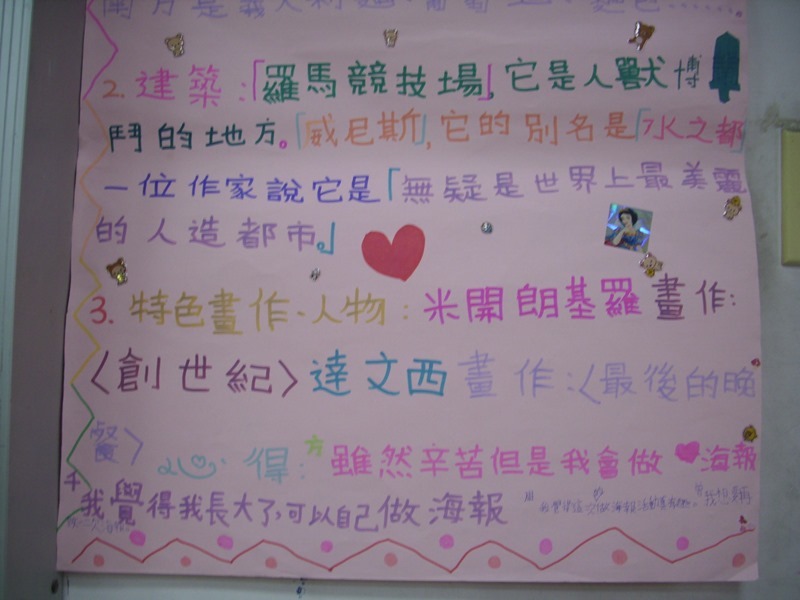 南方是義大利麵、葡萄
2. 建築:「羅馬競技場」,它是人獸博
鬥的地方。「威尼斯」,它的別名是「水之都」
一位作家說它是「無疑是世界上最美麗
的人造都市。」
3. 特色畫作、人物:米開朗基羅畫作:
〈創世紀〉達文西畫作:〈最後的晚
餐〉
心得:方 雖然辛苦但是我會做海報
千 我覺得我長大了,可以自己做海報
我想再